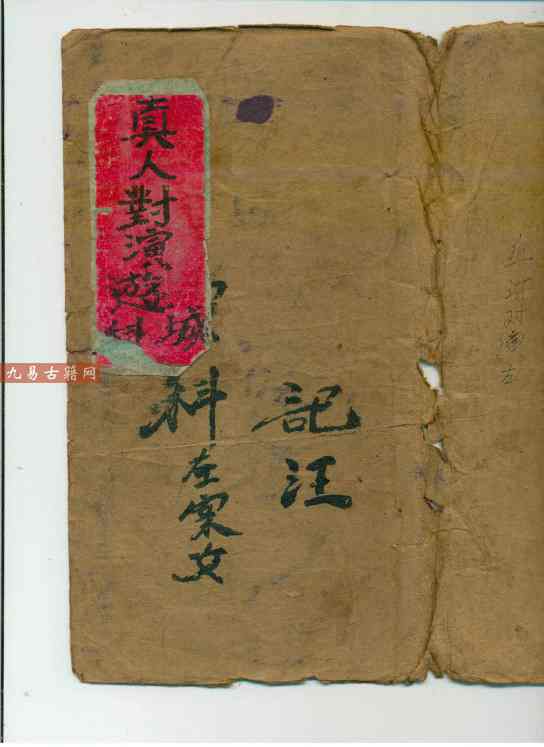 真人對演遊
城科
科左案文
記汪
九易古籍网